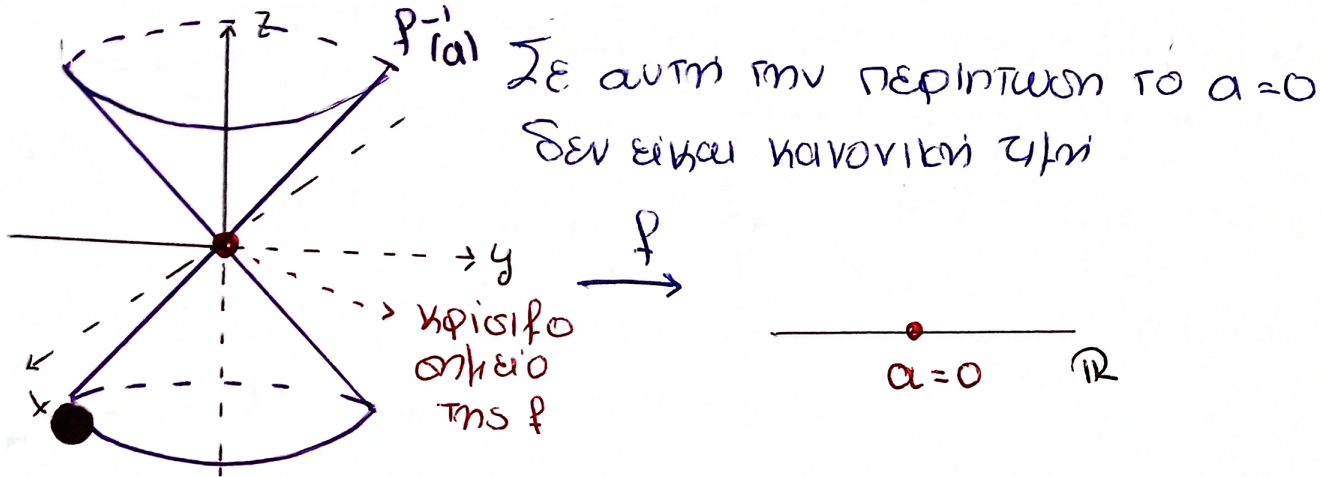 z
f⁻¹(a)
Σε αυτή την περίπτωση το a=0
δεν είναι κανονική τιμή
f
y
κρίσιμο
σημείο
της f
x
a=0
ℝ